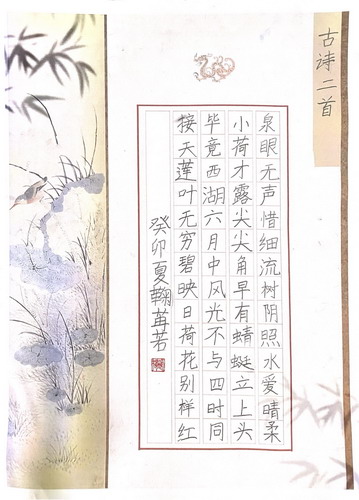 古诗二首
泉眼无声惜细流树阴照水爱晴柔
小荷才露尖尖角早有蜻蜓立上头
毕竟西湖六月中风光不与四时同
接天莲叶无穷碧映日荷花别样红
癸卯夏鞠若